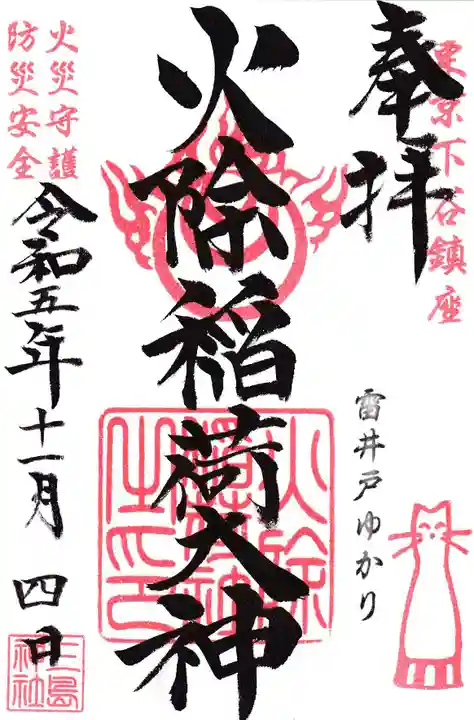 東京下谷鎮座
奉拝
雷井戸ゆかり
火除稲荷大神
火災守護
防災安全
令和五年十一月四日
三島神社